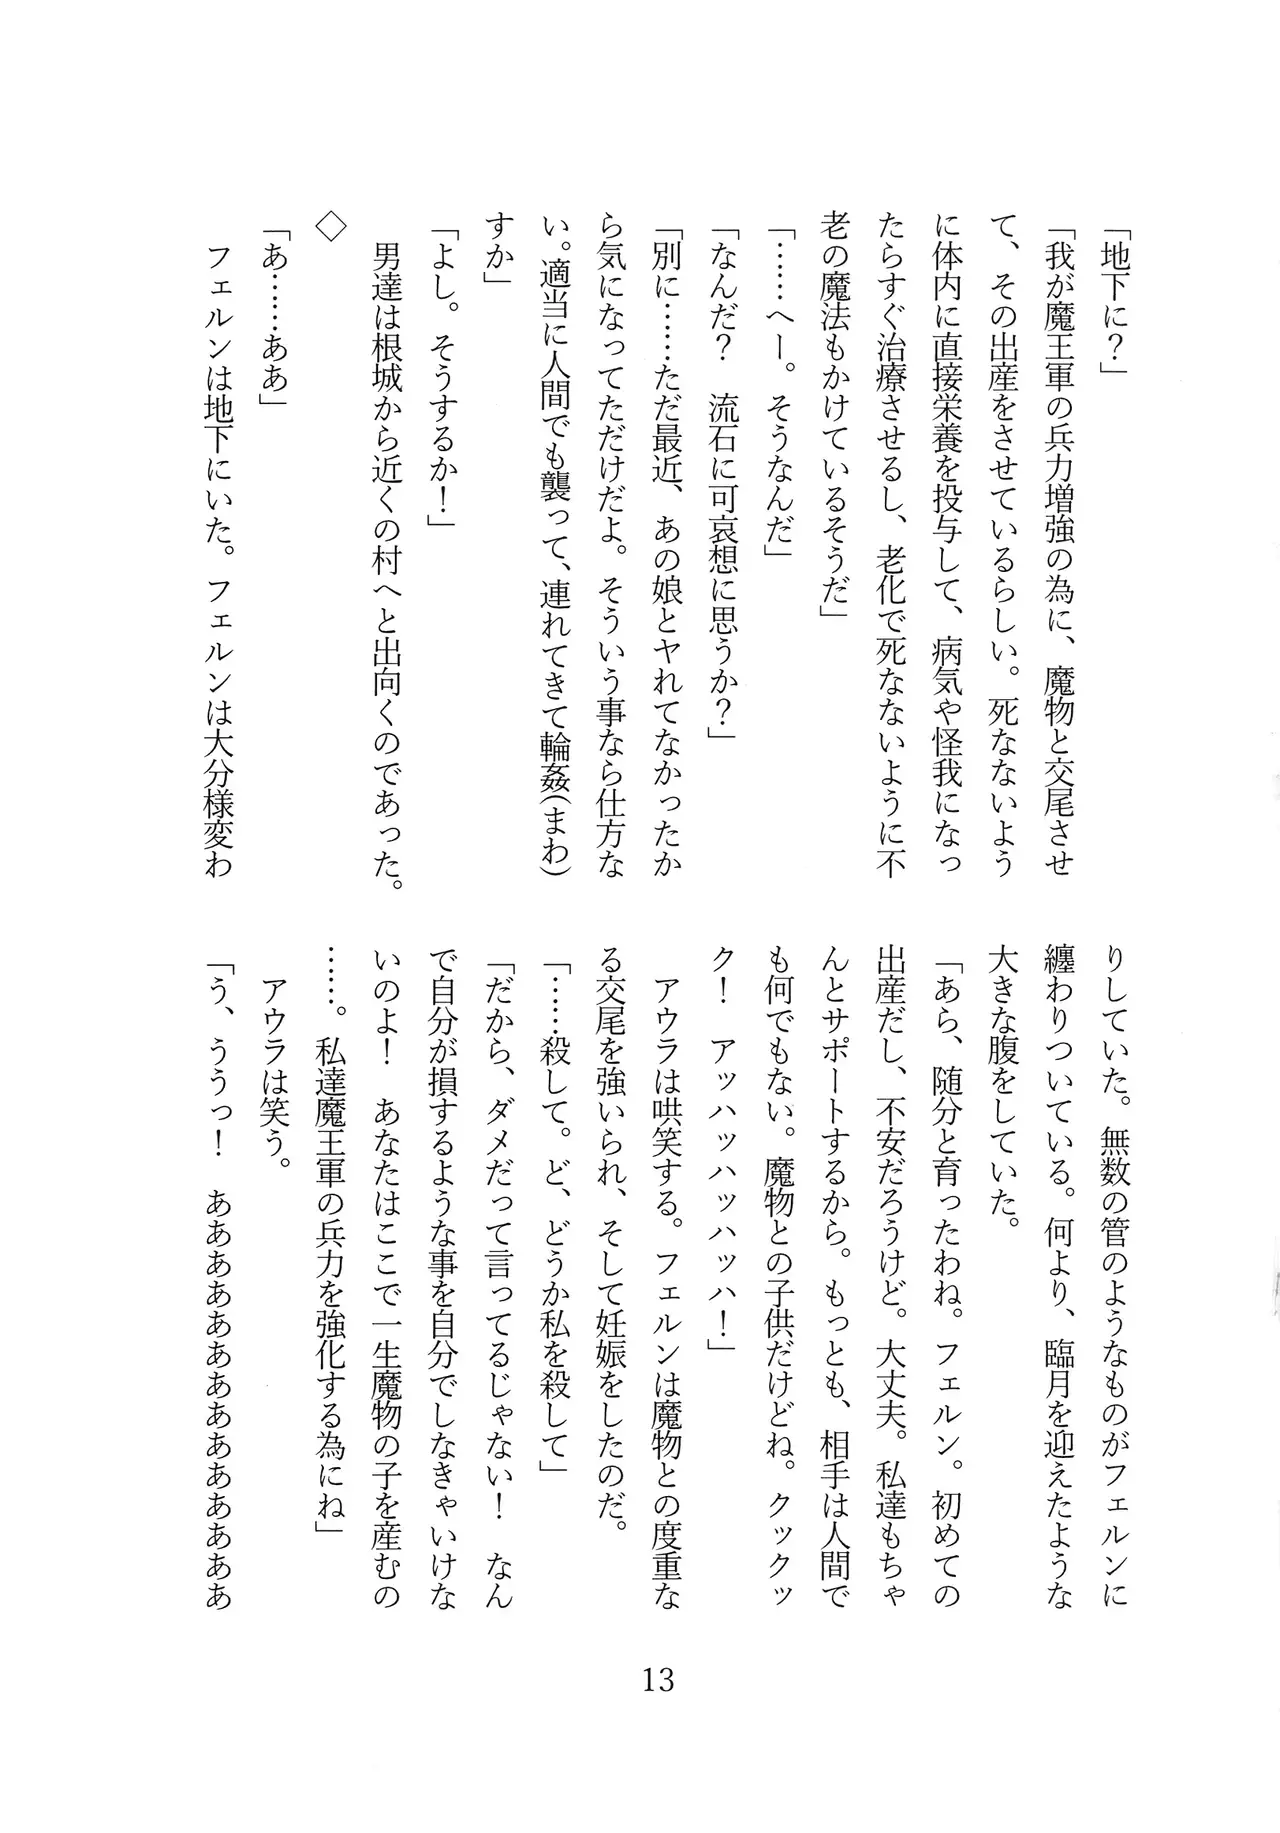 「地下に？」
「我が魔王軍の兵力増強の為に、魔物と交尾させ
て、その出産をさせているらしい。死なないよう
に体内に直接栄養を投与して、病気や怪我になっ
たらすぐ治療させるし、老化で死なないように不
老の魔法もかけているそうだ」
「……へー。そうなんだ」
「なんだ？　流石に可哀想に思うか？」
「別に……ただ最近、あの娘とヤれてなかったか
ら気になってただけだよ。そういう事なら仕方な
い。適当に人間でも襲って、連れてきて輪姦(まわ)
すか」
「よし。そうするか！」
　男達は根城から近くの村へと出向くのであった。
◇
「あ……ああ」
　フェルンは地下にいた。フェルンは大分様変わ
りしていた。無数の管のようなものがフェルンに
纏わりついている。何より、臨月を迎えたような
大きな腹をしていた。
「あら、随分と育ったわね。フェルン。初めての
出産だし、不安だろうけど。大丈夫。私達もちゃ
んとサポートするから。もっとも、相手は人間で
も何でもない。魔物との子供だけどね。クックッ
ク！　アッハッハッハッハ！」
　アウラは哄笑する。フェルンは魔物との度重な
る交尾を強いられ、そして妊娠をしたのだ。
「……殺して。ど、どうか私を殺して」
「だから、ダメだって言ってるじゃない！　なん
で自分が損するような事を自分でしなきゃいけな
いのよ！　あなたはここで一生魔物の子を産むの
……。私達魔王軍の兵力を強化する為にね」
　アウラは笑う。
「う、ううっ！　ああああああああああああああ
13